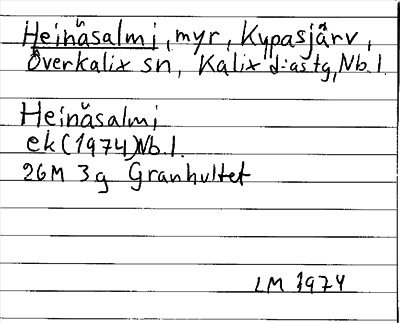 Heinäsalmi, myr, Kypasjärv,
Överkalix sn, Kalix d:astg, Nb.l.
Heinäsalmi
ek (1974) Nb.l.
26M 3g Granhultet
LM 1974